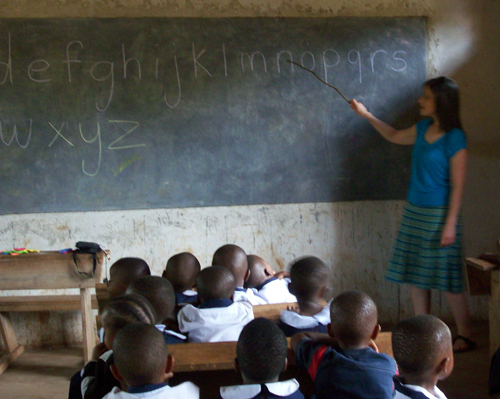 defghijklmnopqrs
wxyz